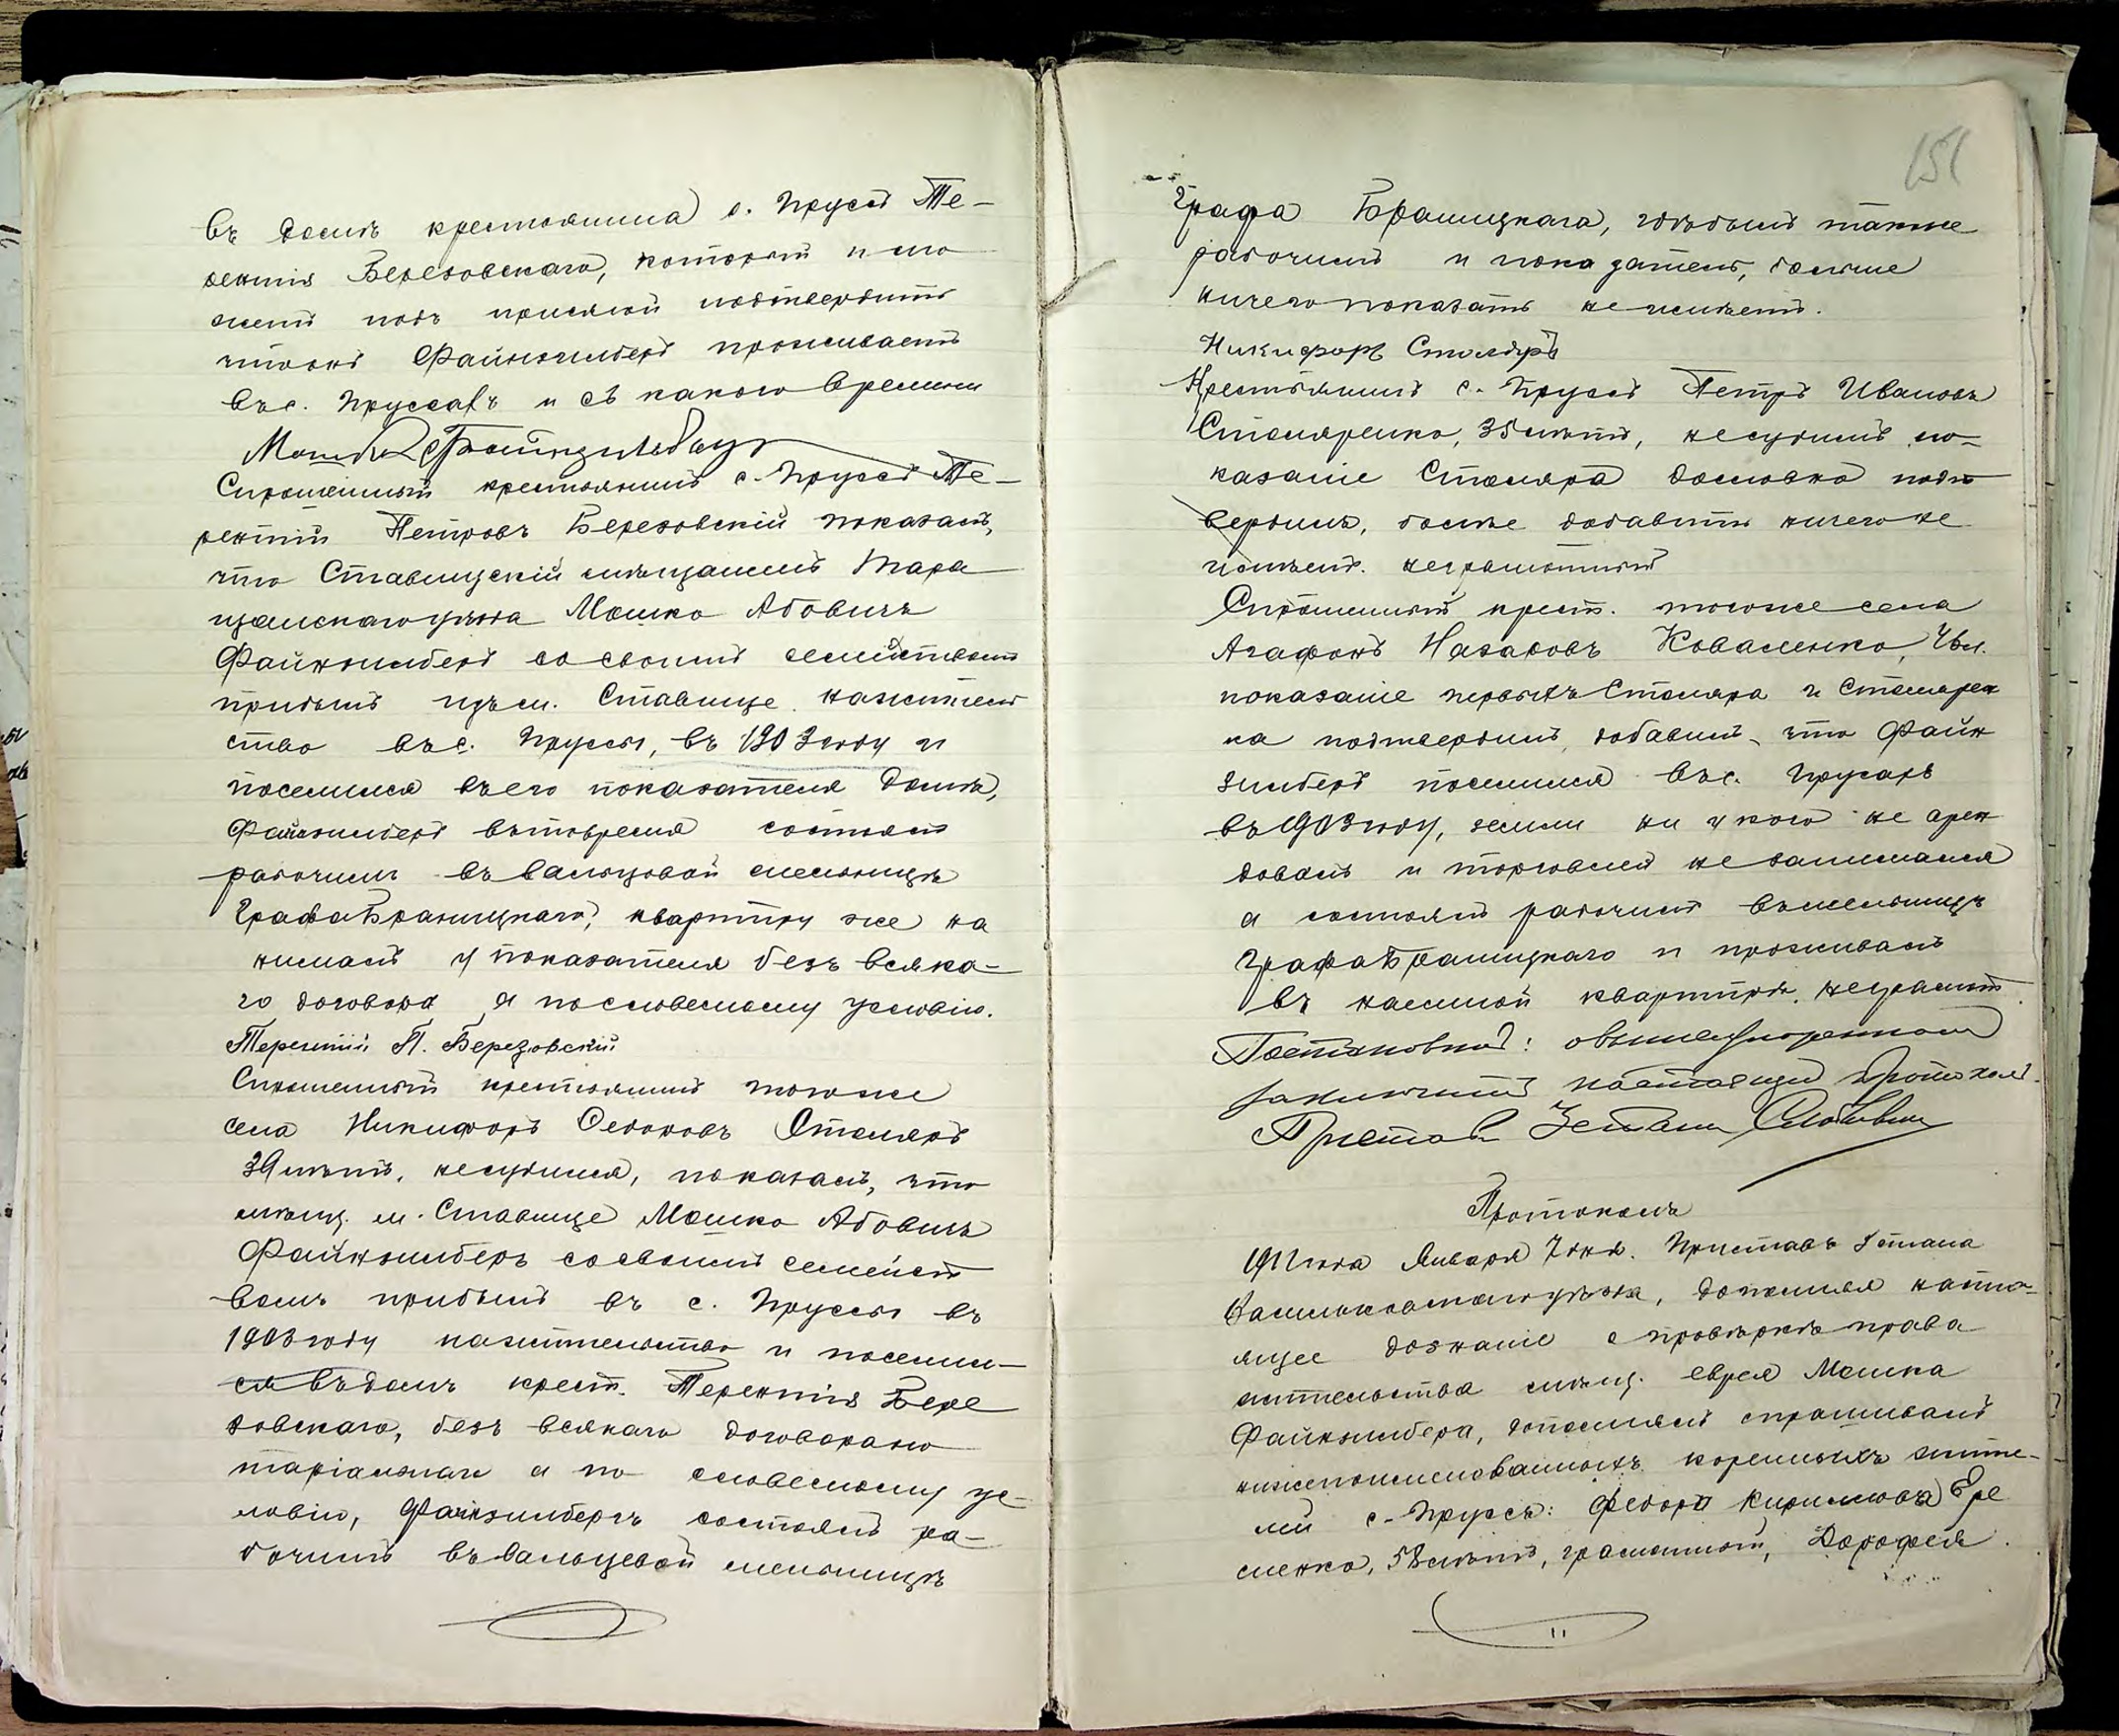 въ домѣ крестьянина с. Пруссъ Те-
рентія Березовскаго, который и мо
жетъ подъ присягой подтвердить
что онъ Файнзильберъ проживаетъ
въ с. Пруссахъ и съ какого времени
Мошко Файнзильберъ
Спрошенный крестьянинъ с. Пруссъ Те-
рентій Петровъ Березовскій показалъ,
что Ставищскій мѣщанинъ Тара
щанскаго уѣзда Мошко Абовичъ
Файнзильберъ со своимъ семействомъ
прибылъ изъ м. Ставище на жительс
ство въ с. Пруссы, въ 1903 году и
поселился въ его показателя домѣ,
Файнзильберъ въ то время состоялъ
рабочимъ въ вальцовой мельницѣ
Графа Браницкаго, квартиру же на
нималъ у показателя безъ всяка-
го договора а по словесному условію.
Терентій П. Березовскій
Спрошенный крестьянинъ того же
села Никифоръ Федоровъ Столяръ
39 лѣтъ, не судился, показалъ, что
мѣщ. м. Ставище Мошко Абовичъ
Файнзильберъ со своимъ семейст
вомъ прибылъ въ с. Пруссы въ
1903 году на жительство и поселил-
ся въ домъ крест. Терентія Бере
зовскаго, безъ всякаго договора но
таріальнаго а по словесному ус-
ловію, Файнзильберъ состоялъ ра-
бочимъ въ вальцевой мельницѣ
151
Графа Браницкаго, гдѣ былъ также
рабочимъ и показатель, больше
ничего показать не имѣетъ.
Никифоръ Столяръ
Крестьянинъ с. Пруссъ Петръ Ивановъ
Столяренко, 35 лѣтъ, не судимъ по-
казаніе Столяра дословно подт
вердилъ, болѣе добавить ничего не
имѣетъ. неграмотный
Спрошенный крест. того же села
Агафонъ Назаровъ Коваленко,
показаніе первыхъ Столяра и Столярен
ка подтвердилъ, добавилъ, что Файн
зильберъ поселился въ с. Прусахъ
въ 1903 году, земли ни у кого не арен
довалъ и торговлей не занимался
а состоялъ рабочимъ въ мельницѣ
Графа Браницкаго и проживалъ
въ наемной квартирѣ. неграмот.
Постановилъ: о вышеизложенномъ
заключить настоящій протоколъ.
Приставъ
Протоколъ
1911 года Января 7 дня. Приставъ 3 стана
Васильковскаго уѣзда, дополняя насто-
ящее дознаніе о провѣркѣ права
жительства мѣщ. еврея Мошка
Файнзильбера, дополнялъ спрашивалъ
нижепоименованныхъ коренныхъ жите-
лей с. Пруссъ: Федора Кирилова Ере
менка, 58 лѣтъ, грамотный, Дорофея